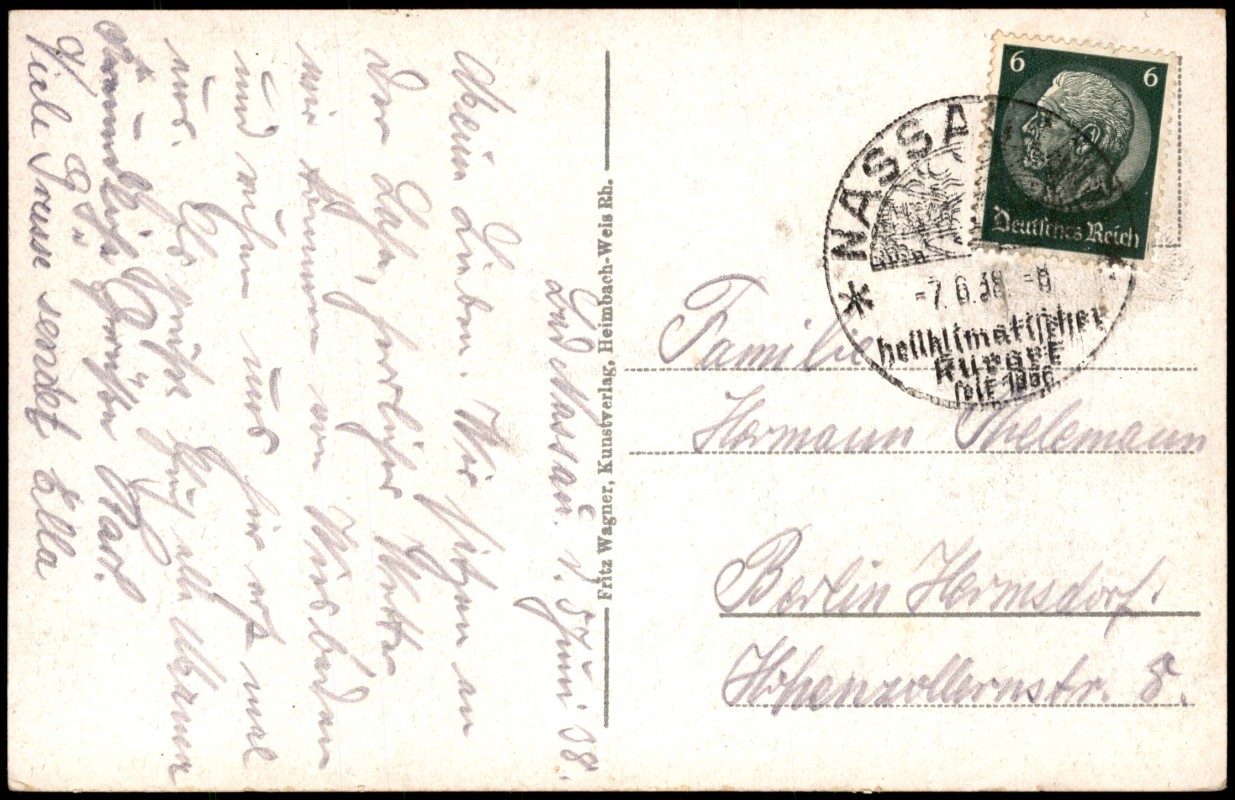 Bad Nassau. d. 5. Juni 38.
Meine Lieben. Wir sitzen an
der Lahn, herrliches Wetter
wir kommen von Wiesbaden
und ruhen uns hier erst mal
aus. Es grüßt Euch alle
Viele Grüsse sendet Ella
Fritz Wagner, Kunstverlag, Heimbach-Weis Rh.
6 6
Deutsches Reich
* NASSA
-7.6.38.-8
heilklimatischer
Kurort
seit 1856
Familie
Hermann Thelemann
Berlin Hermsdorf.
Hohenzollernstr. 8.